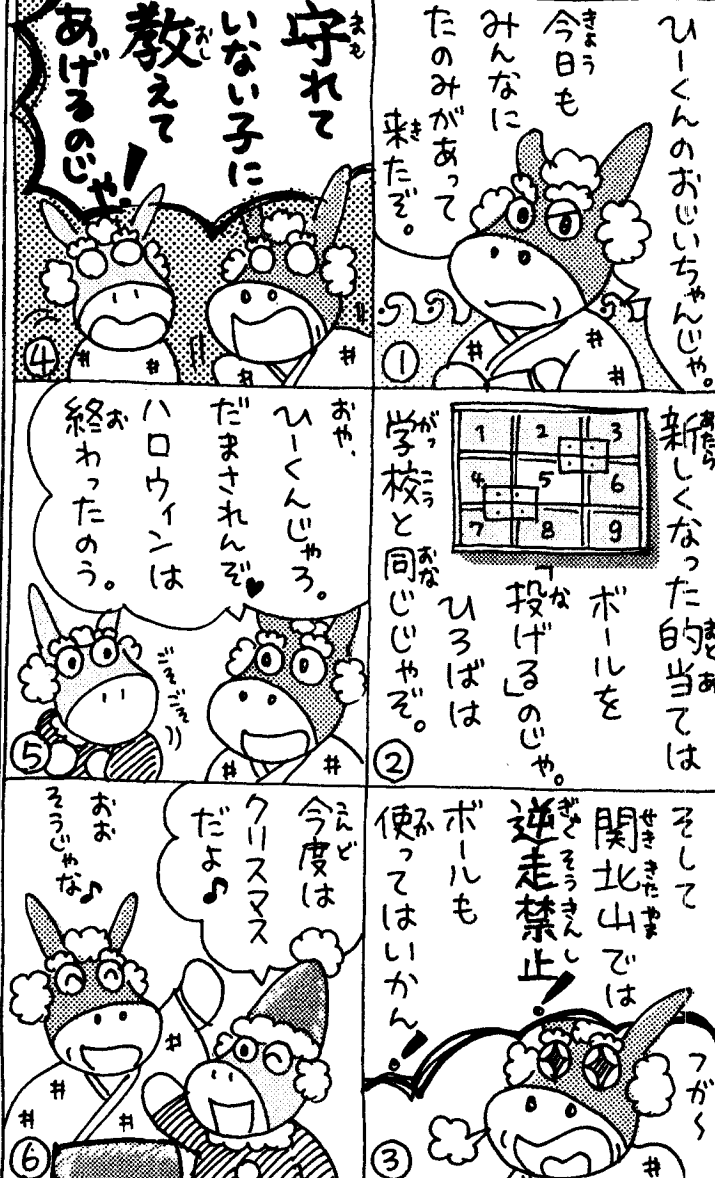 ひーくんのおじいちゃんじゃ。
今日も
みんなに
たのみがあって
来たぞ。
①
新しくなった的当ては
ボールを
「投げる」のじゃ。
ひろばは
学校と同じじゃぞ。
1 2 3
4 5 6
7 8 9
②
そして
関北山では
逆走禁止!
ボールも
使ってはいかん!
フガ〜
③
守れて
いない子に
教えて
あげるのじゃ!
④
おや、
ひーくんじゃろ。
だまされんぞ♥
ハロウィンは
終わったのう。
ごそごそ
⑤
今度は
クリスマス
だよ♪
おお
そうじゃな♪
⑥